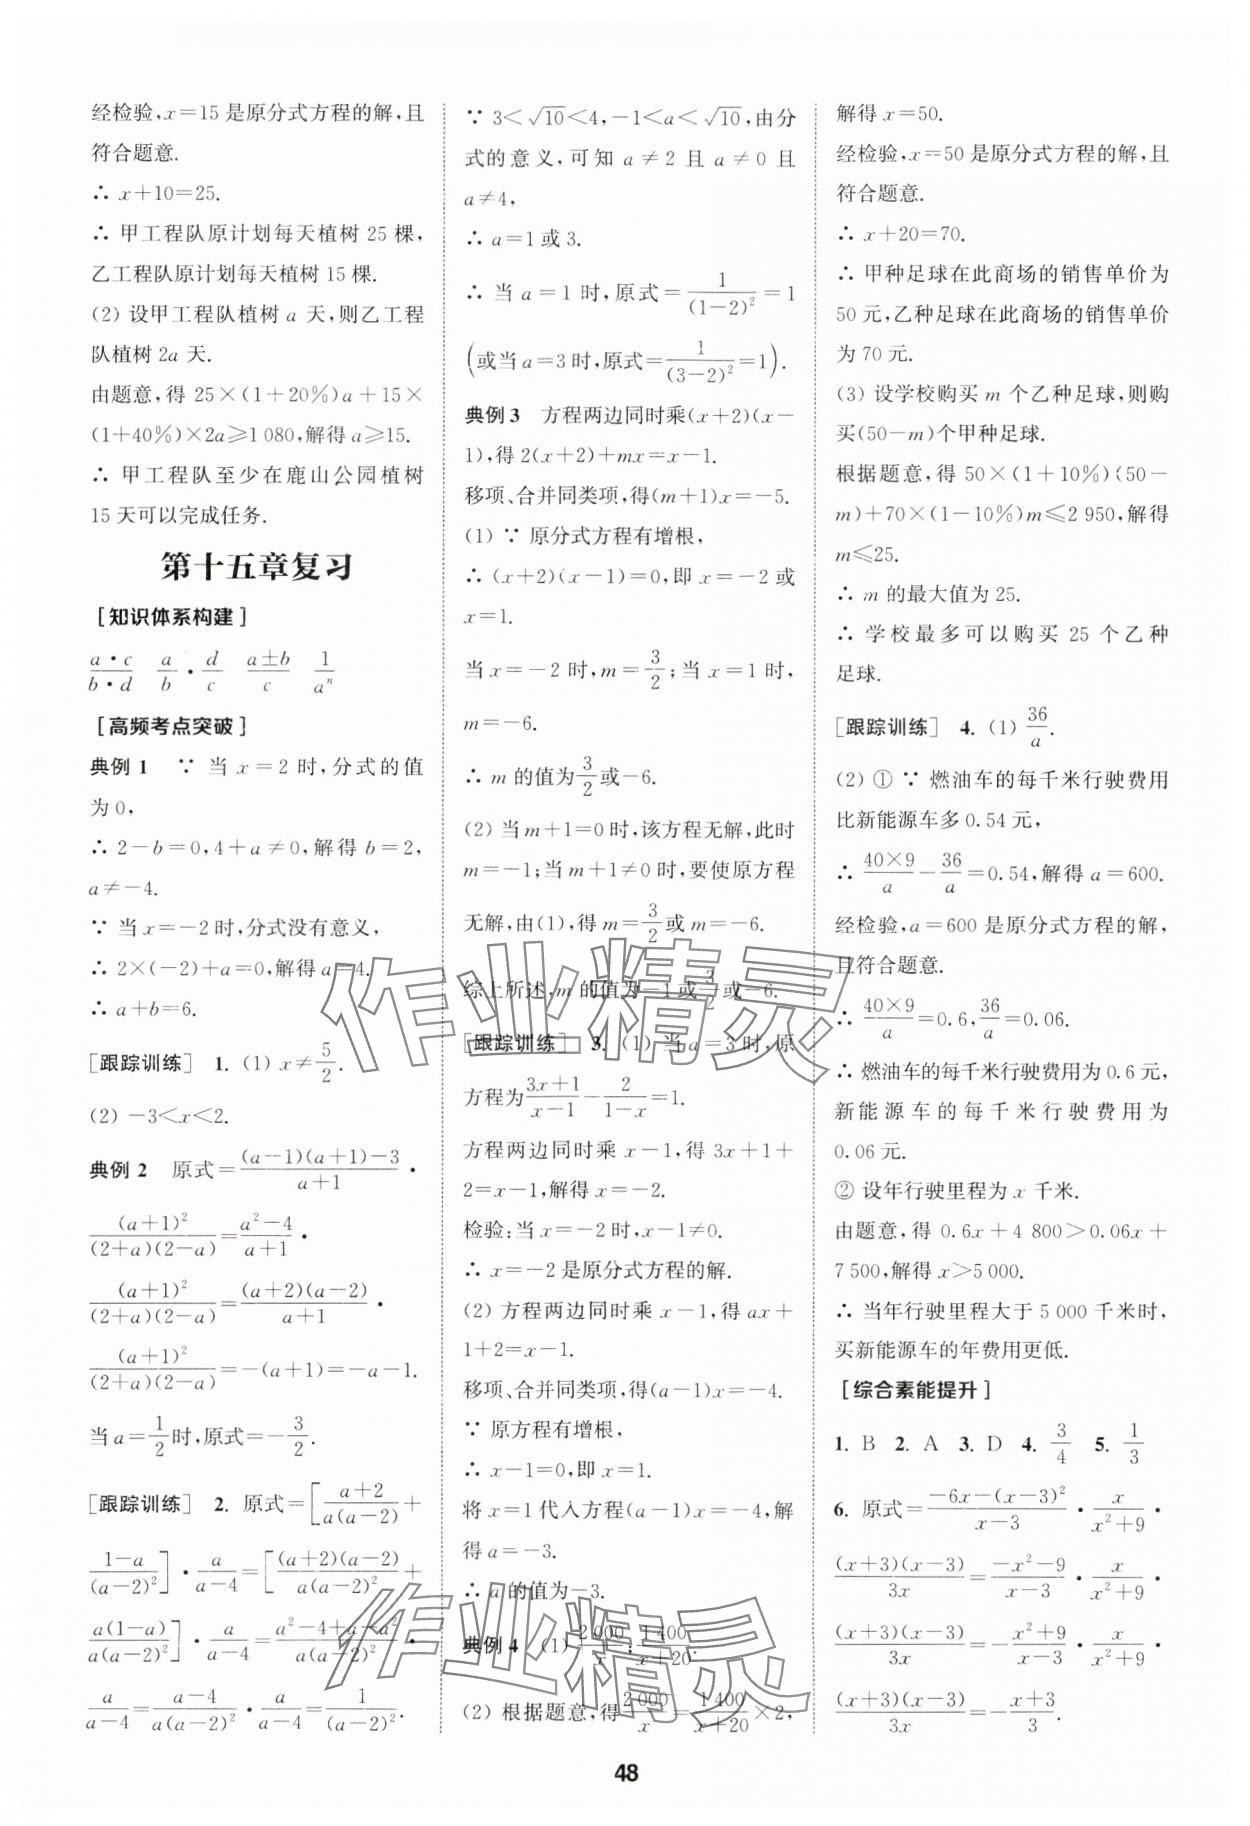 经检验,x=15 是原分式方程的解,且
符合题意.
∴ x+10=25.
∴ 甲工程队原计划每天植树 25 棵,
乙工程队原计划每天植树 15 棵.
(2) 设甲工程队植树 a 天,则乙工程
队植树 2a 天.
由题意,得 25×(1+20%)a+15×
(1+40%)×2a≥1 080,解得 a≥15.
∴ 甲工程队至少在鹿山公园植树
15 天可以完成任务.
第十五章复习
[知识体系构建]
\frac{a·c}{b·d} \frac{a}{b}·\frac{d}{c} \frac{a±b}{c} \frac{1}{a^n}
[高频考点突破]
典例 1 ∵ 当 x=2 时,分式的值
为 0,
∴ 2-b=0,4+a≠0,解得 b=2,
a≠-4.
∵ 当 x=-2 时,分式没有意义,
∴ 2×(-2)+a=0,解得 a=4.
∴ a+b=6.
[跟踪训练] 1. (1) x≠\frac{5}{2}.
(2) -3<x<2.
典例 2 原式=\frac{(a-1)(a+1)-3}{a+1}·
\frac{(a+1)^2}{(2+a)(2-a)}=\frac{a^2-4}{a+1}·
\frac{(a+1)^2}{(2+a)(2-a)}=\frac{(a+2)(a-2)}{a+1}·
\frac{(a+1)^2}{(2+a)(2-a)}=-(a+1)=-a-1.
当 a=\frac{1}{2}时,原式=-\frac{3}{2}.
[跟踪训练] 2. 原式=[\frac{a+2}{a(a-2)}+
\frac{1-a}{(a-2)^2}]·\frac{a}{a-4}=[\frac{(a+2)(a-2)}{a(a-2)^2}+
\frac{a(1-a)}{a(a-2)^2}]·\frac{a}{a-4}=\frac{a^2-4+a-a^2}{a(a-2)^2}·
\frac{a}{a-4}=\frac{a-4}{a(a-2)^2}·\frac{a}{a-4}=\frac{1}{(a-2)^2}.
∵ 3<√10<4,-1<a<√10,由分
式的意义,可知 a≠2 且 a≠0 且
a≠4,
∴ a=1 或 3.
∴ 当 a=1 时,原式=\frac{1}{(1-2)^2}=1
(或当 a=3 时,原式=\frac{1}{(3-2)^2}=1).
典例 3 方程两边同时乘(x+2)(x-
1),得 2(x+2)+mx=x-1.
移项、合并同类项,得(m+1)x=-5.
(1) ∵ 原分式方程有增根,
∴ (x+2)(x-1)=0,即 x=-2 或
x=1.
当 x=-2 时,m=\frac{3}{2};当 x=1 时,
m=-6.
∴ m 的值为\frac{3}{2}或-6.
(2) 当 m+1=0 时,该方程无解,此时
m=-1;当 m+1≠0 时,要使原方程
无解,由(1),得 m=\frac{3}{2}或 m=-6.
综上所述,m 的值为-1 或\frac{3}{2}或-6.
[跟踪训练] 3. (1) 当 a=3 时,原
方程为\frac{3x+1}{x-1}-\frac{2}{1-x}=1.
方程两边同时乘 x-1,得 3x+1+
2=x-1,解得 x=-2.
检验:当 x=-2 时,x-1≠0.
∴ x=-2 是原分式方程的解.
(2) 方程两边同时乘 x-1,得 ax+
1+2=x-1.
移项、合并同类项,得(a-1)x=-4.
∵ 原方程有增根,
∴ x-1=0,即 x=1.
将 x=1 代入方程(a-1)x=-4,解
得 a=-3.
∴ a 的值为-3.
典例 4 (1) \frac{2 000}{x};\frac{1 400}{x+20}.
(2) 根据题意,得\frac{2 000}{x}=\frac{1 400}{x+20}×2,
解得 x=50.
经检验,x=50 是原分式方程的解,且
符合题意.
∴ x+20=70.
∴ 甲种足球在此商场的销售单价为
50 元,乙种足球在此商场的销售单价
为 70 元.
(3) 设学校购买 m 个乙种足球,则购
买(50-m)个甲种足球.
根据题意,得 50×(1+10%)(50-
m)+70×(1-10%)m≤2 950,解得
m≤25.
∴ m 的最大值为 25.
∴ 学校最多可以购买 25 个乙种
足球.
[跟踪训练] 4. (1) \frac{36}{a}.
(2) ① ∵ 燃油车的每千米行驶费用
比新能源车多 0.54 元,
∴ \frac{40×9}{a}-\frac{36}{a}=0.54,解得 a=600.
经检验,a=600 是原分式方程的解,
且符合题意.
∴ \frac{40×9}{a}=0.6,\frac{36}{a}=0.06.
∴ 燃油车的每千米行驶费用为 0.6 元,
新能源车的每千米行驶费用为
0.06 元.
② 设年行驶里程为 x 千米.
由题意,得 0.6x+4 800>0.06x+
7 500,解得 x>5 000.
∴ 当年行驶里程大于 5 000 千米时,
买新能源车的年费用更低.
[综合素能提升]
1. B 2. A 3. D 4. \frac{3}{4} 5. \frac{1}{3}
6. 原式=\frac{-6x-(x-3)^2}{x-3}·\frac{x}{x^2+9}·
\frac{(x+3)(x-3)}{3x}=\frac{-x^2-9}{x-3}·\frac{x}{x^2+9}·
\frac{(x+3)(x-3)}{3x}=-\frac{x^2+9}{x-3}·\frac{x}{x^2+9}·
\frac{(x+3)(x-3)}{3x}=-\frac{x+3}{3}.
作业精灵
作业精灵
48